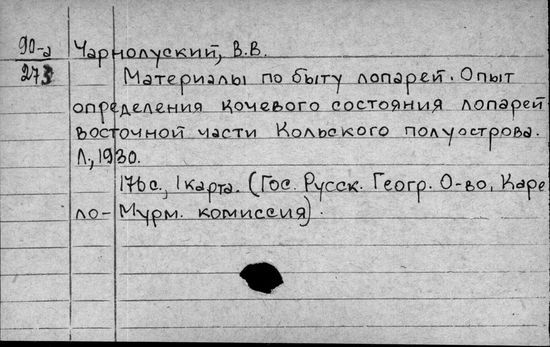 90-а Чарнолуский, В.В.
273 Материалы по быту лопарей. Опыт
определения кочевого состояния лопарей
восточной части Кольского полуострова.
Л., 1930.
176с., 1 карта. (Гос. Русск. Геогр. О-во, Каре
ло-Мурм. комиссия).